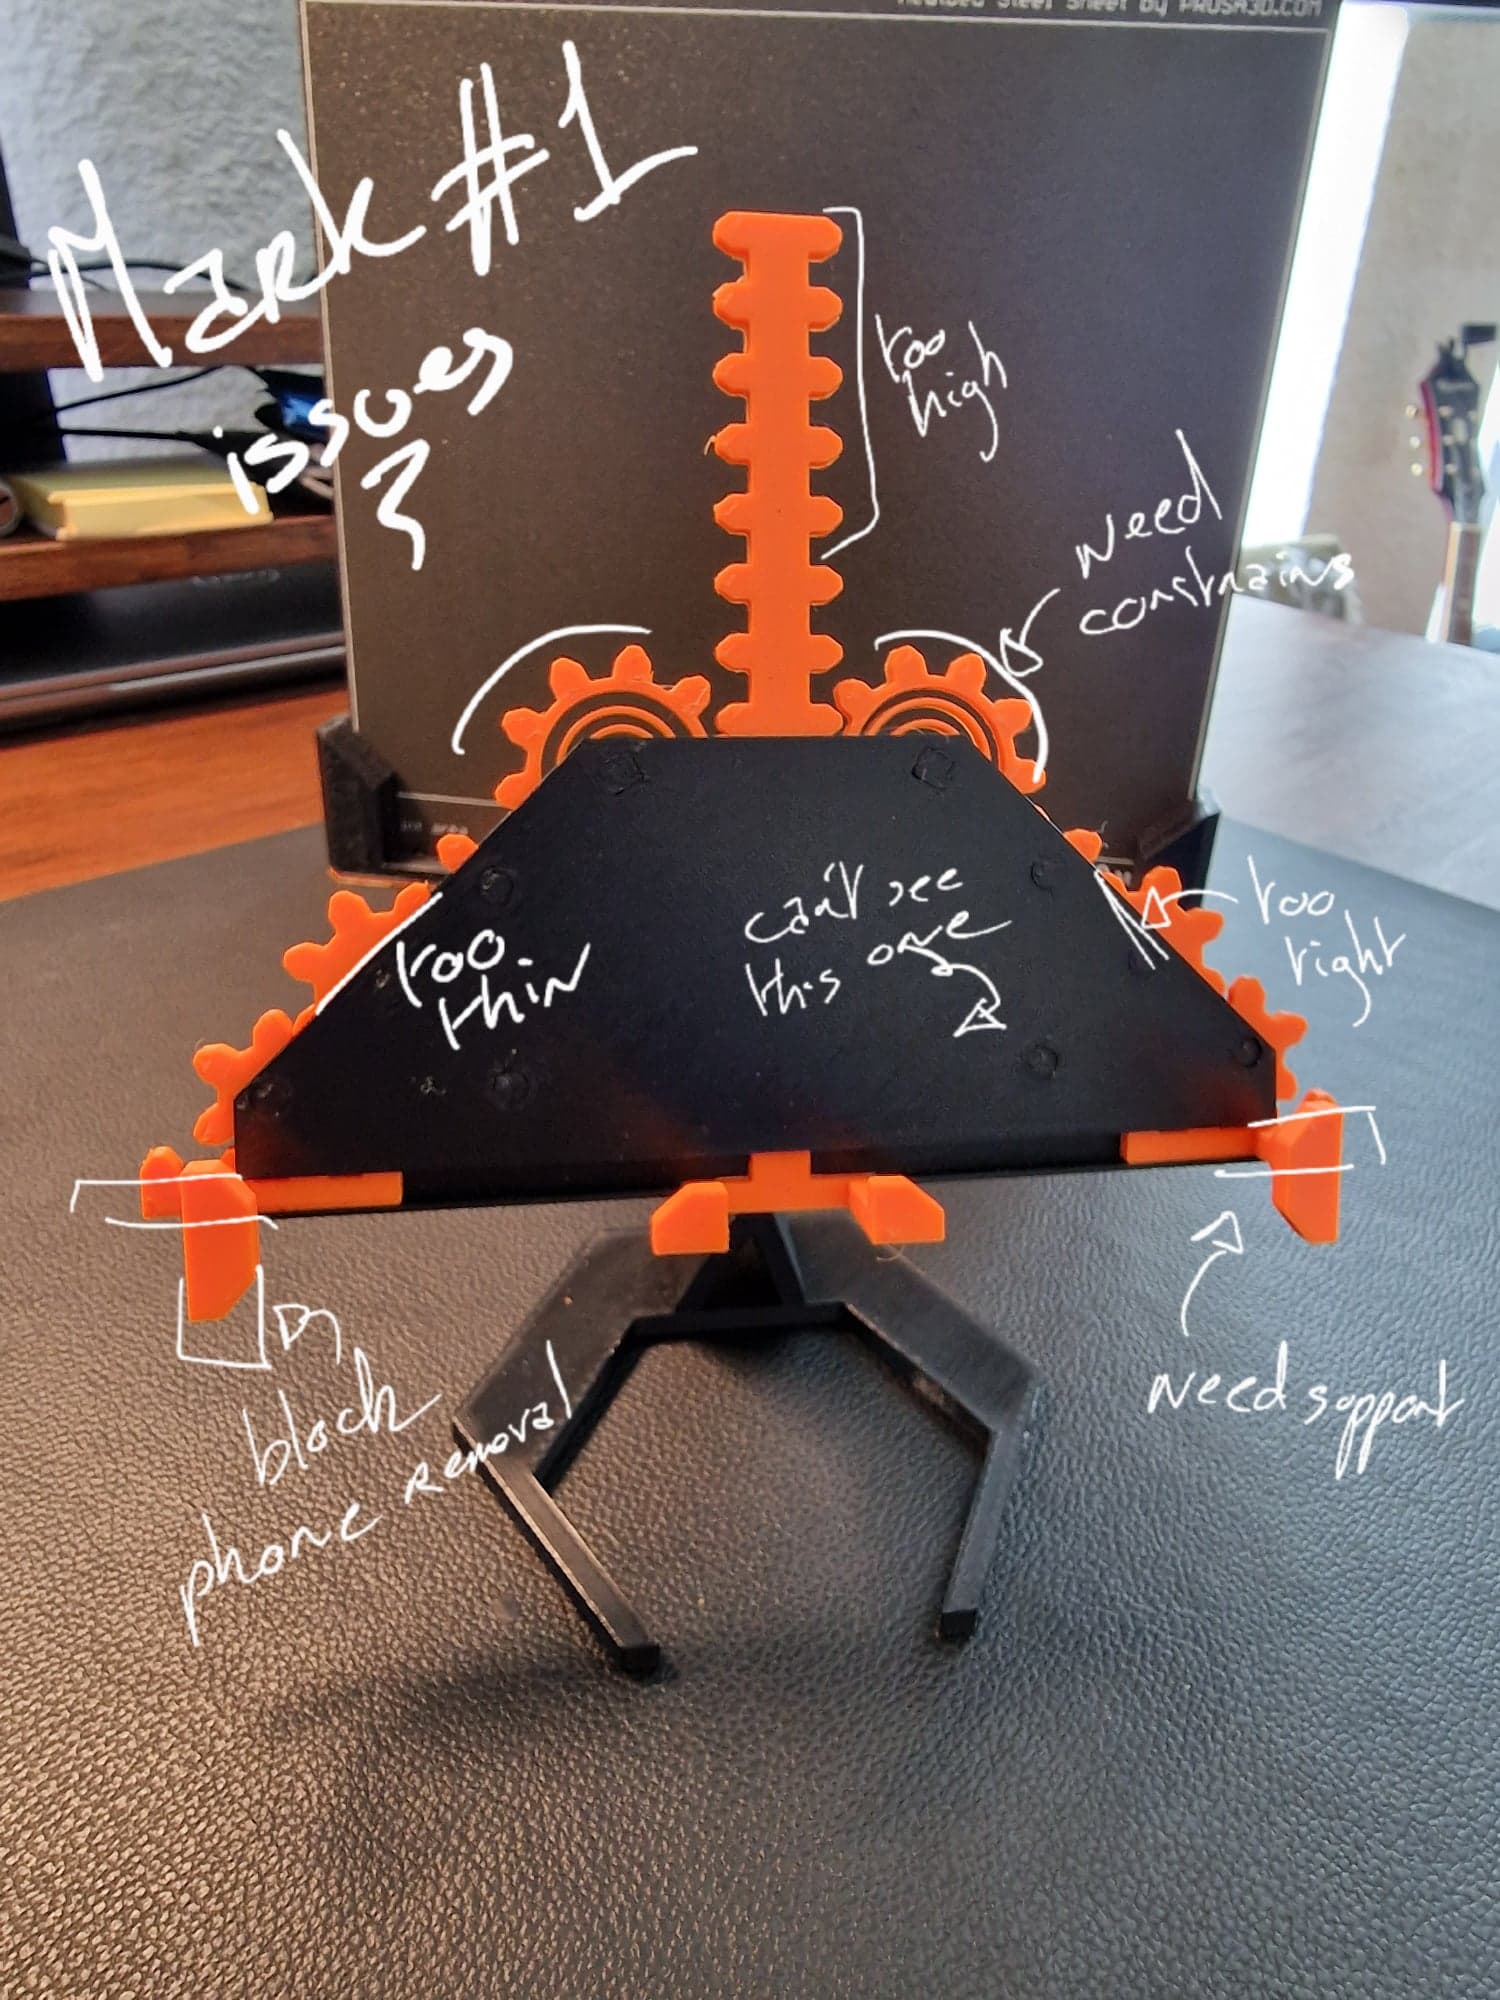 Steel Sheet by PRUSA3D.COM
Mark #1
issues
too
high
Need
constrains
too
thin
can't see
this one
too
tight
block
phone removal
Need support